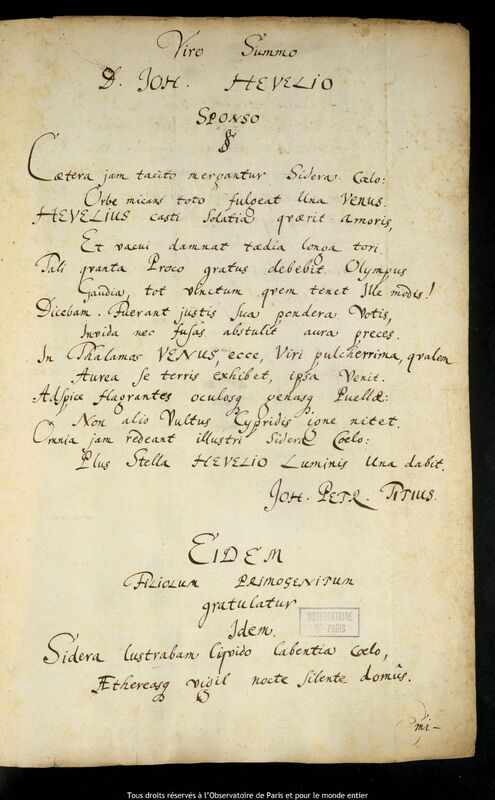 Viro Summo
D. JOH. HEVELIO
SPONSO
Cætera jam tacito mergantur Sidera Cœlo:
Orbe micans toto fulgeat Una VENUS.
HEVELIUS casti solatia quærit amoris,
Et vacui damnat tædia longa tori.
Tali quanta Proco gratus debebit Olympus
Gaudia, tot vinctum quem tenet Ille modis!
Dicebam. Fuerant justis sua pondera Votis,
Invida nec fusas abstulit aura preces.
In Thalamos VENUS, ecce, Viri pulcherrima, qualem
Aurea se terris exhibet, ipsa Venit.
Adspice flagrantes oculosq genasq Puellæ:
Non alio Vultus Cypridis igne nitet.
Omnia jam redeant illustri Sidera Cœlo:
Plus Stella HEVELIO Luminis Una dabit.
JOH. PETR. TITIUS.
EIDEM
FILIOLUM PRIMOGENITUM
gratulatur
Idem.
OBSERVATOIRE
DE PARIS
Sidera lustrabam liquido labentia Cœlo,
Æthereasq vigil nocte silente domûs.
mi-
Tous droits réservés à l'Observatoire de Paris et pour le monde entier